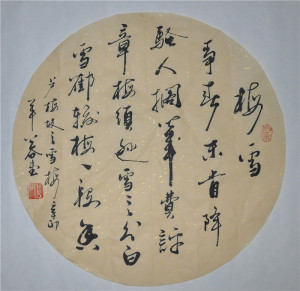 梅雪
爭春未肯降
騷人擱筆費評
章梅須遜雪三分白
雪卻輸梅一段香
卢梅坡之雪梅辛卯
年